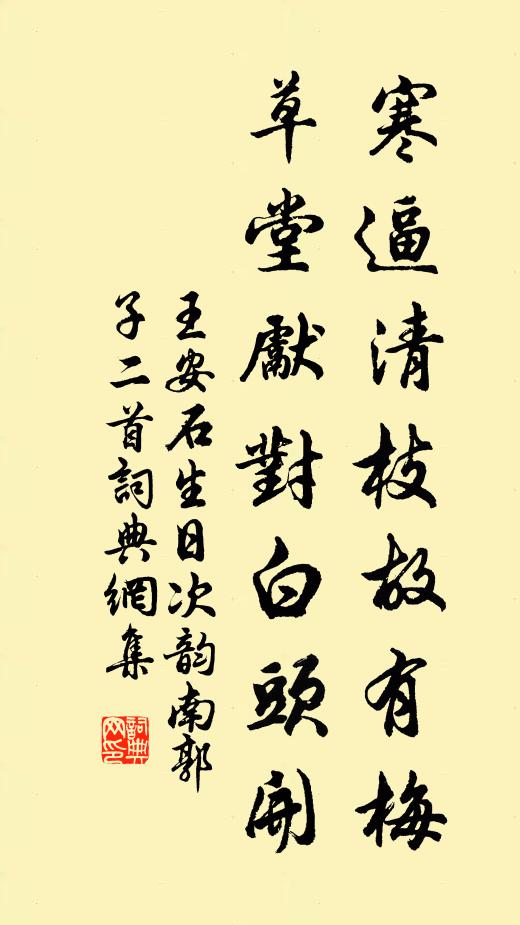 寒逼清枝故有梅
草堂獻對白頭開
王安石生日次韵南郭
子二首詞典網集
詞典
网印